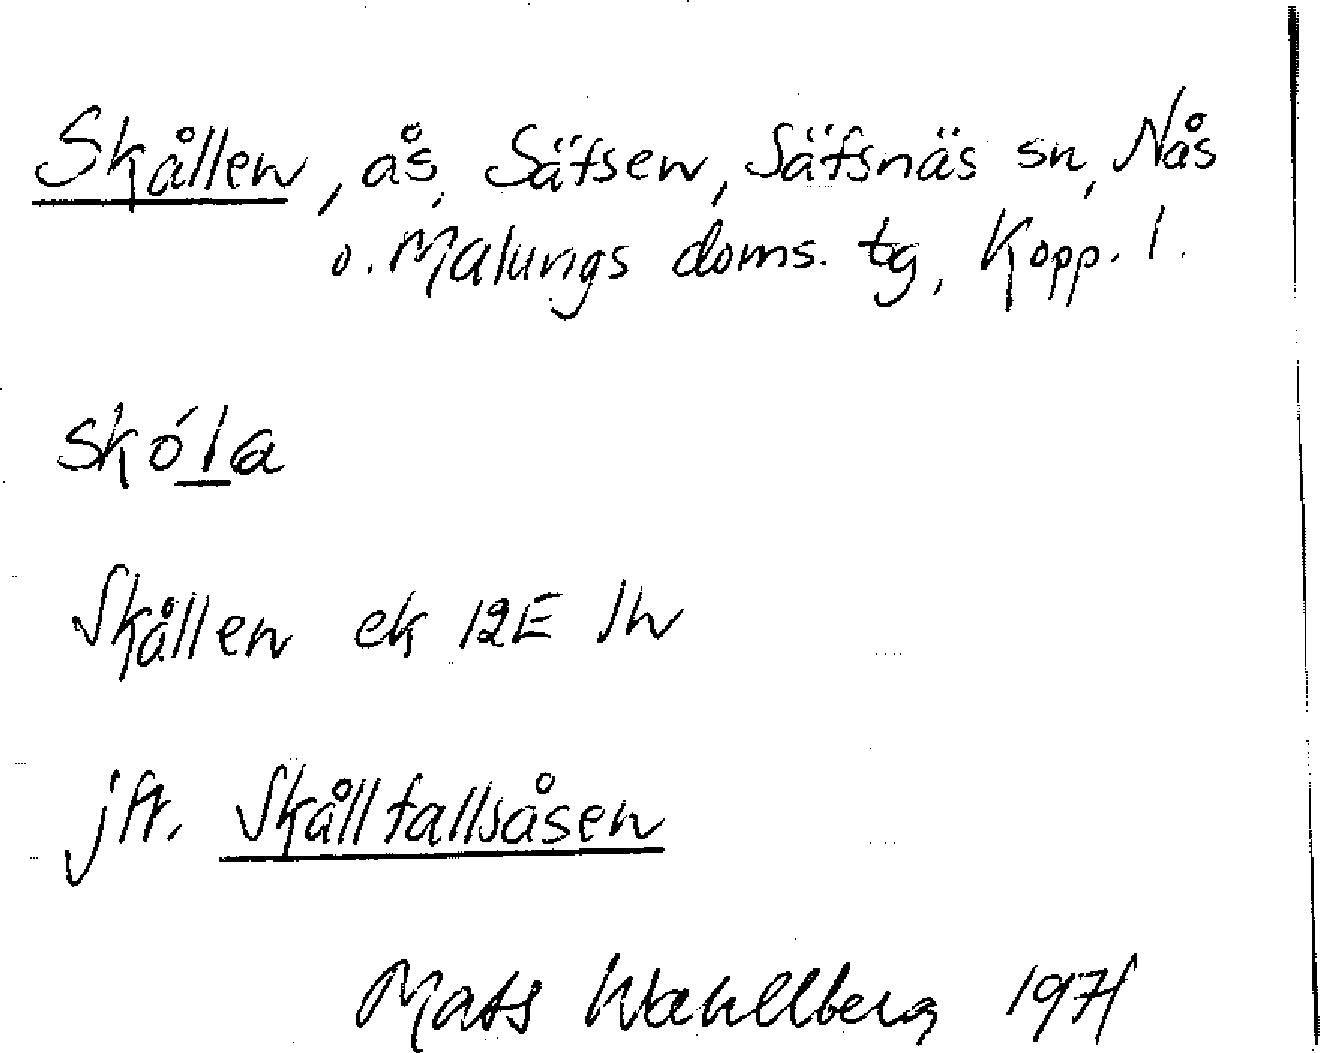 Skållen, ås, Säfsen, Säfsnäs sn, Nås
o. Malungs doms. tg, Kopp. l.
skóla
Skållen ek 12E 1h
jfr. Skållfallsåsen
Mats Wahlberg 1971